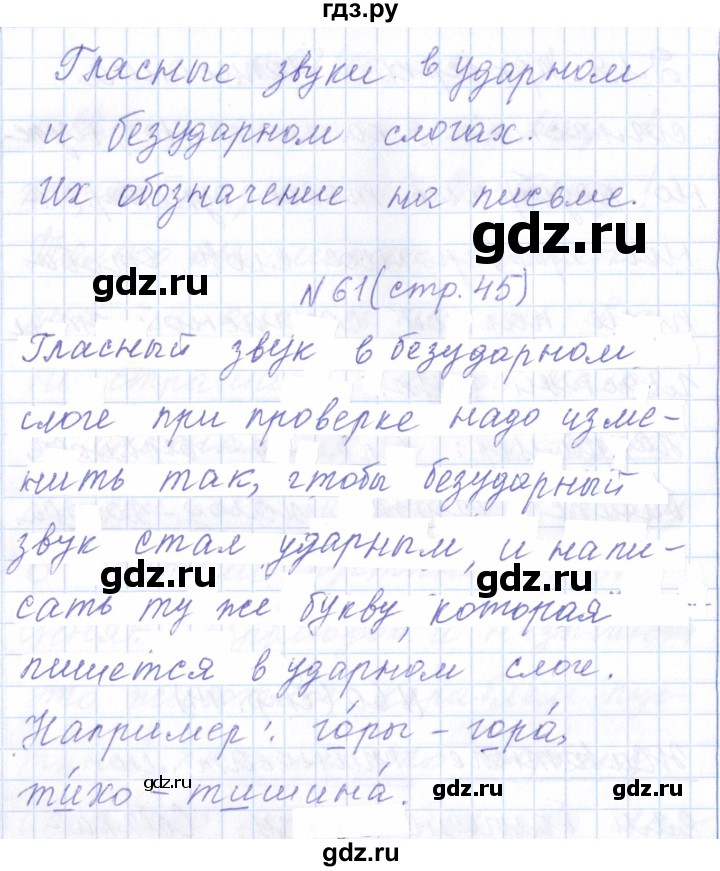 гдз.ру
Гласные звуки в ударном
и безударном слогах.
Их обозначение на письме.
gdz.ru
gdz.ru
N 61 (стр. 45)
Гласный звук в безударном
слоге при проверке надо изме-
нить так, чтобы безударный
звук стал ударным, и напи-
gdz.ru
gdz.ru
сать ту же букву, которая
пишется в ударном слоге.
Например: го́ры – гора́,
ти́хо – тишина́.
gdz.ru
gdz.ru
gdz.ru
гдз.ру